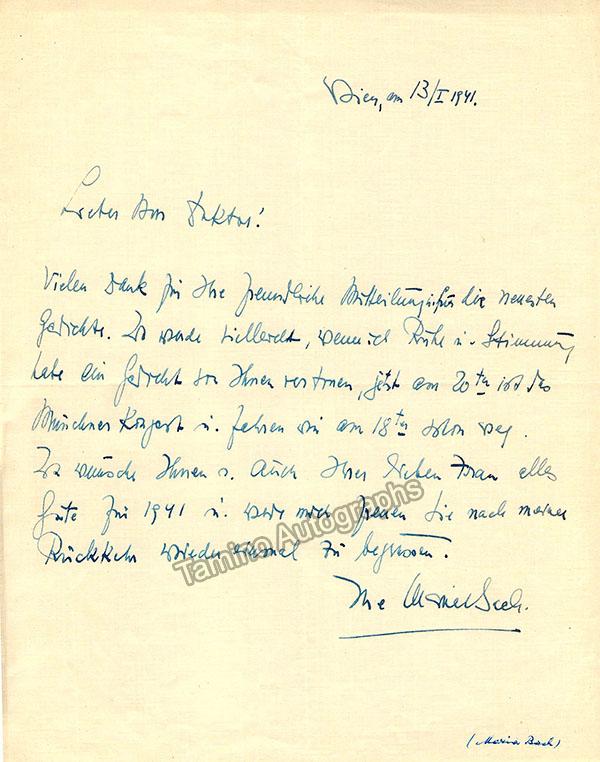 Wien, am 13/I 1941.
Lieber Herr Doktor!
Vielen Dank für Ihre freundliche Mitteilung u. für die neuesten
Gedichte. Ich werde vielleicht, wenn ich Ruhe u. Stimmung
habe ein Gedicht von Ihnen vertonen, jetzt am 20ten ist das
Münchner Konzert u. fahren wir am 18ten schon weg.
Ich wünsche Ihnen u. auch Ihrer lieben Frau alles
Gute für 1941 u. werde mich freuen Sie nach meiner
Rückkehr wieder einmal zu begrüssen.
Tamino Autographs
Ihre Maria Bach.
(Maria Bach)